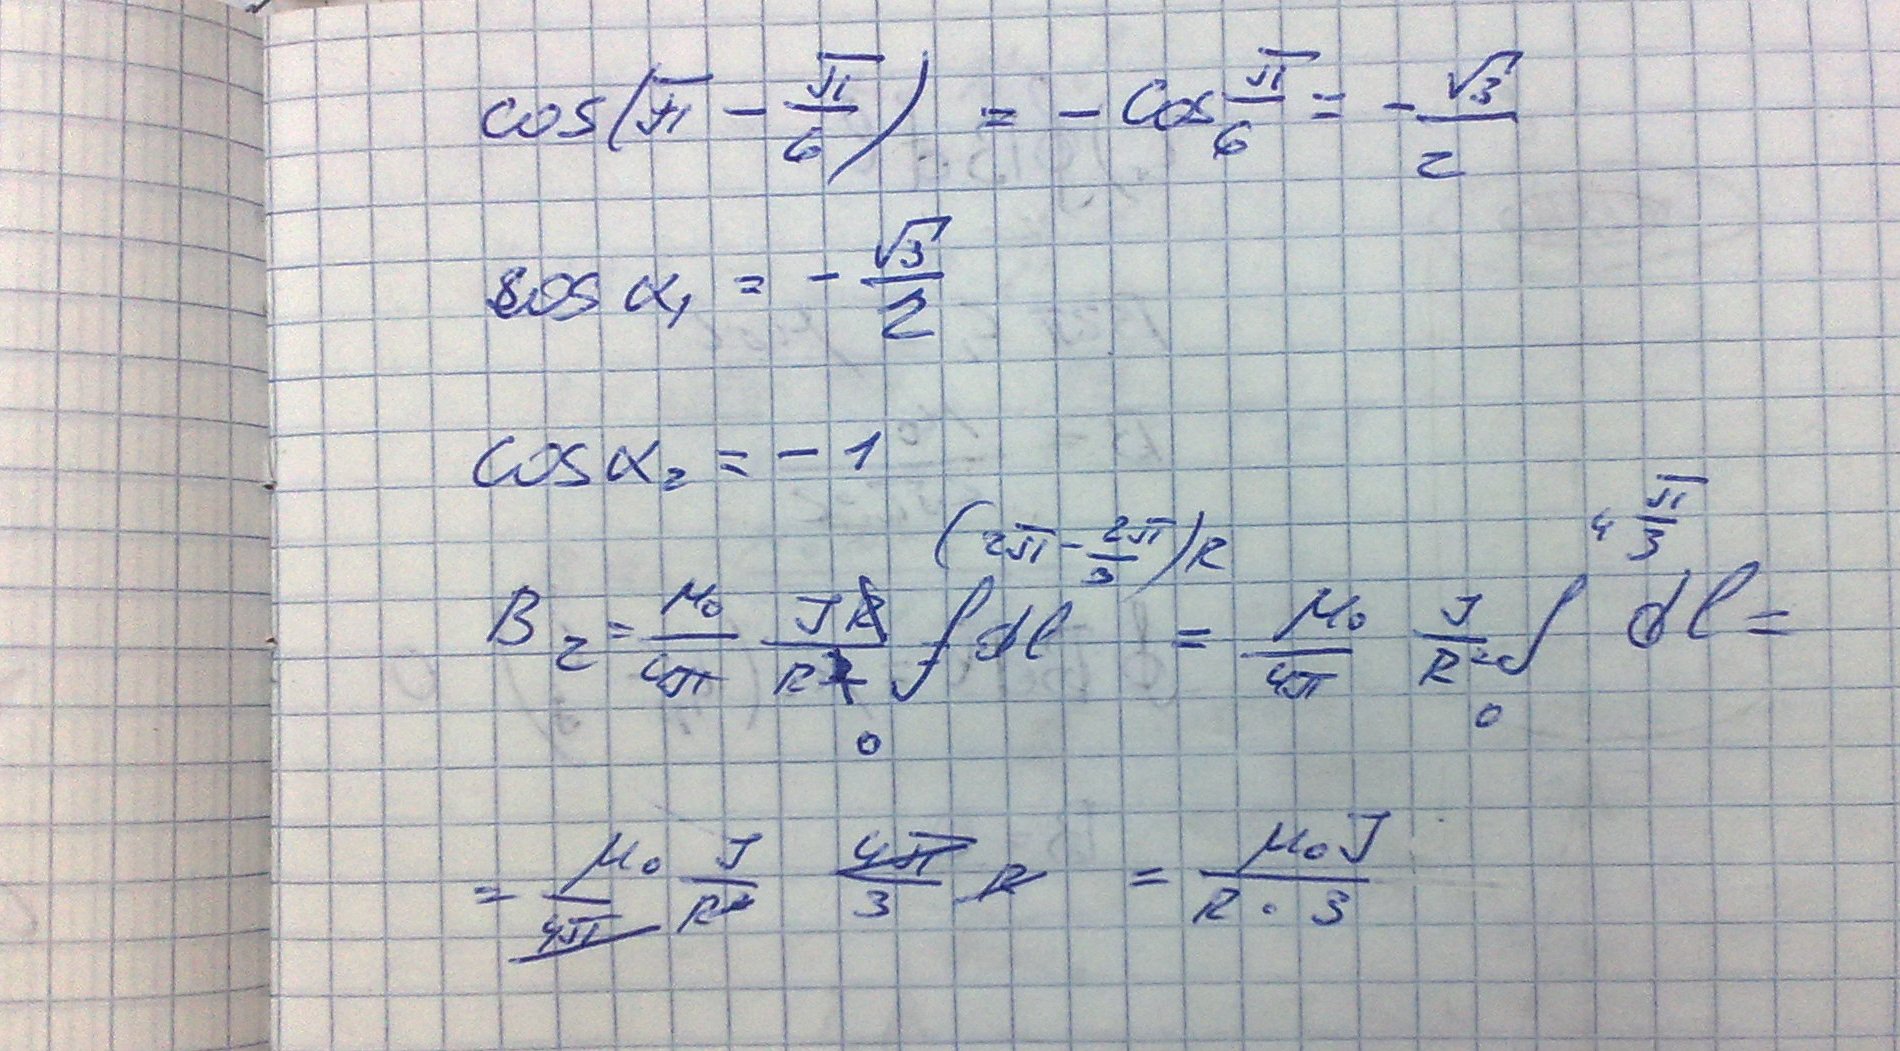 cos(π - π/6) = - cos π/6 = - √3/2
cos α₁ = - √3/2
cos α₂ = - 1
B₂ = μ₀/4π JR/R³ ∫₀^{(2π - 2π/3)R} dl = μ₀/4π J/R² ∫₀^{4π/3} dl =
= μ₀/4π J/R² 4π/3 R = μ₀J/R·3